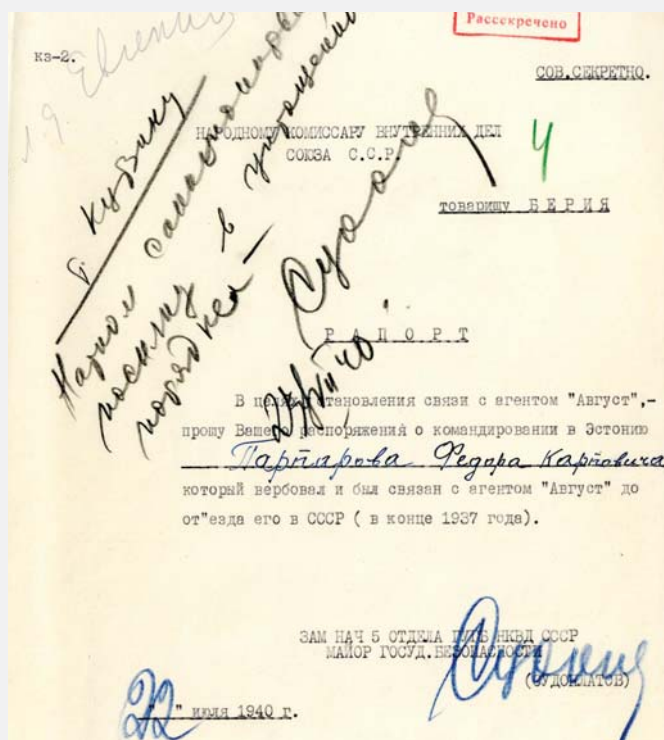 Рассекречено
кз-2.
Евгении
СОВ.СЕКРЕТНО.
НАРОДНОМУ КОМИССАРУ ВНУТРЕННИХ ДЕЛ
СОЮЗА С.С.Р.
4
товарищу БЕРИЯ
Нарком
посылку в
Судопл
РАПОРТ
В целях установления связи с агентом "Август",-
прошу Вашего распоряжения о командировании в Эстонию
Партарова Федора Карповича
который вербовал и был связан с агентом "Август" до
от"езда его в СССР ( в конце 1937 года).
ЗАМ НАЧ 5 ОТДЕЛА ГУГБ НКВД СССР
МАЙОР ГОСУД.БЕЗОПАСНОСТИ
(СУДОПЛАТОВ)
"22" июля 1940 г.